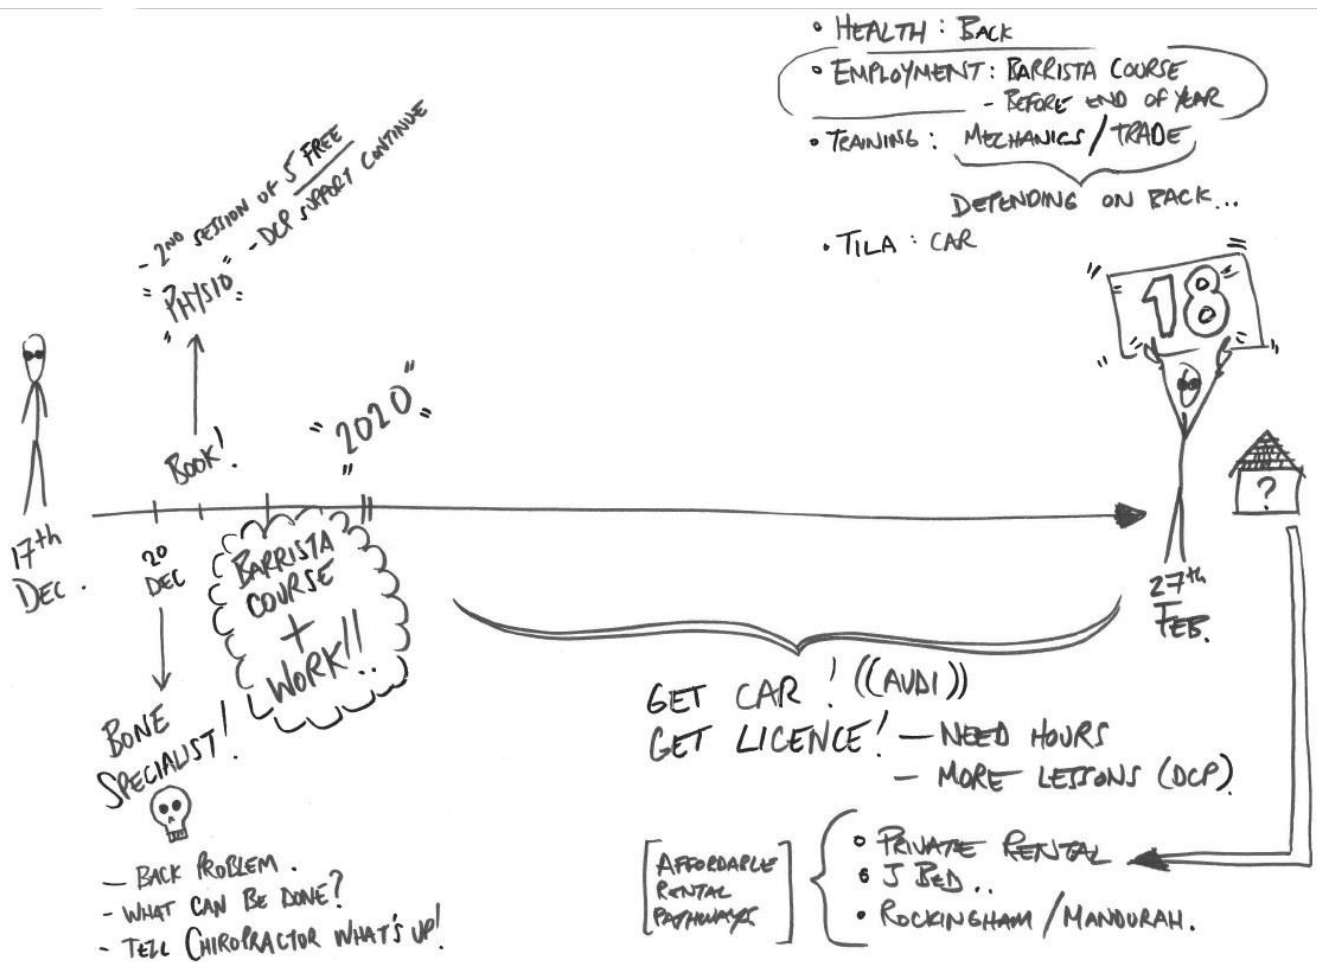 • HEALTH : BACK
• EMPLOYMENT : BARRISTA COURSE
- BEFORE END OF YEAR
• TRAINING : MECHANICS / TRADE
DEPENDING ON BACK...
• TILA : CAR
- 2ND SESSION OF 5 FREE
- DCP SUPPORT CONTINUE
"PHYSIO"
BOOK!
"2020"
18
?
17th
DEC.
20
DEC
BARRISTA
COURSE
+
WORK!!.
27th
FEB.
BONE
SPECIALIST!
- BACK PROBLEM.
- WHAT CAN BE DONE?
- TELL CHIROPRACTOR WHAT'S UP!
GET CAR! ((AUDI))
GET LICENCE! - NEED HOURS
- MORE LESSONS (DCP)
[AFFORDABLE
RENTAL
PATHWAYS]
• PRIVATE RENTAL
• J BED..
• ROCKINGHAM / MANDURAH.